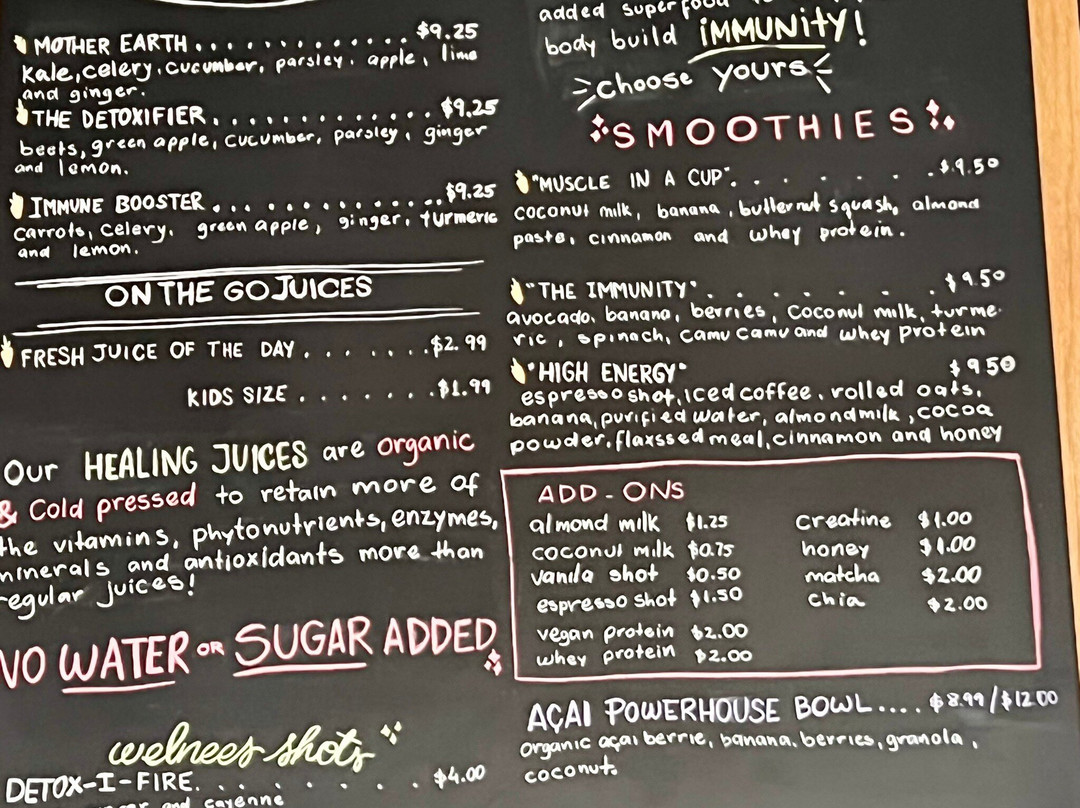 MOTHER EARTH . . . . . . . . . . . . . $9.25
Kale, celery, cucumber, parsley, apple, lime
and ginger.
THE DETOXIFIER . . . . . . . . . . . . . $9.25
beets, green apple, cucumber, parsley, ginger
and lemon.
IMMUNE BOOSTER . . . . . . . . . . . . . $9.25
carrots, celery, green apple, ginger, turmeric
and lemon.
ON THE GO JUICES
FRESH JUICE OF THE DAY . . . . . . . $2.99
KIDS SIZE . . . . . . . . $1.99
Our HEALING JUICES are organic
& Cold pressed to retain more of
the vitamins, phytonutrients, enzymes,
minerals and antioxidants more than
regular juices!
NO WATER OR SUGAR ADDED
welnees shots
DETOX-I-FIRE. . . . . . . . . $4.00
and cayenne
added superfood
body build IMMUNITY!
choose yours
SMOOTHIES
"MUSCLE IN A CUP". . . . . . . . $9.50
coconut milk, banana, butternut squash, almond
paste, cinnamon and whey protein.
"THE IMMUNITY" . . . . . . . . $9.50
avocado, banana, berries, coconut milk, turme-
ric, spinach, camu camu and whey protein
"HIGH ENERGY" $9.50
espresso shot, iced coffee, rolled oats,
banana, purified water, almond milk, cocoa
powder, flaxssed meal, cinnamon and honey
ADD-ONS
almond milk $1.25 Creatine $1.00
coconut milk $0.75 honey $1.00
vanila shot $0.50 matcha $2.00
espresso shot $1.50 chia $2.00
vegan protein $2.00
whey protein $2.00
AÇAI POWERHOUSE BOWL.... $8.99/$12.00
organic açai berrie, banana, berries, granola,
coconut.